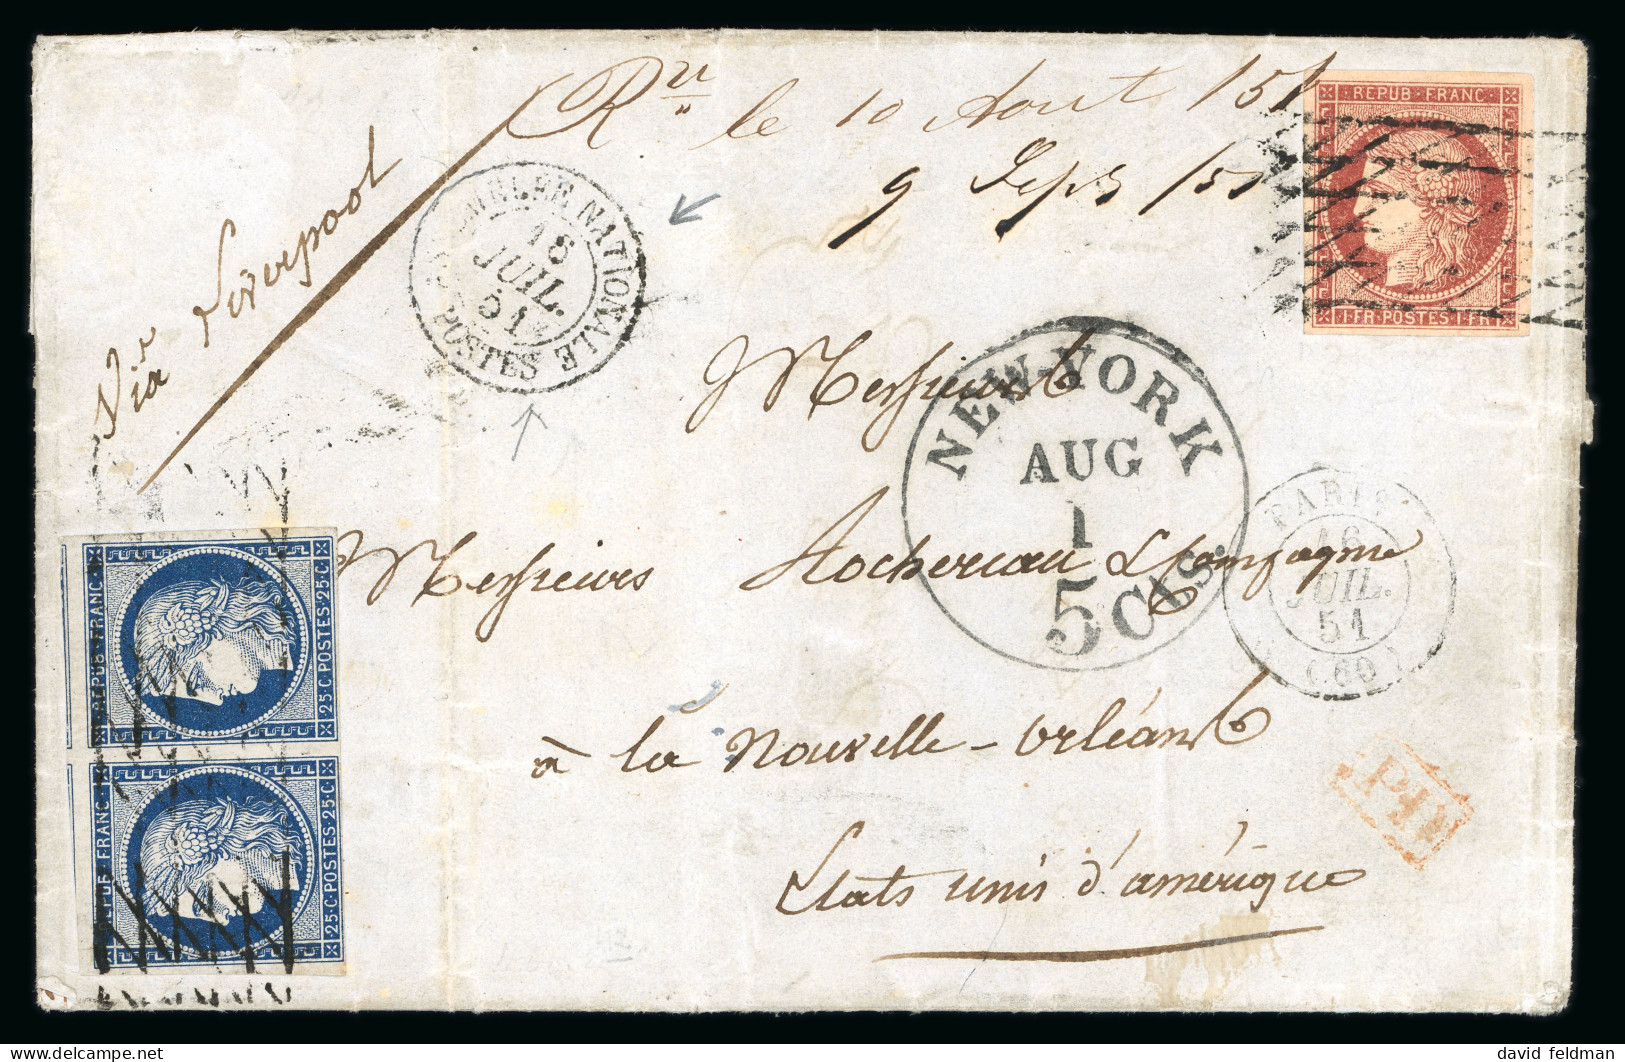 Ru le 10 Aout /51
9 Sept /51
Via Liverpool
ASSEMBLEE NATIONALE
16
JUIL.
51
POSTES
REPUB·FRANC·
1·FR·POSTES·1·FR
Messieurs
NEW-YORK
AUG
1
5 Cts.
PARIS
16
JUIL.
51
(60)
Messieurs Rochereau & Compagnie
à la Nouvelle-Orléans
Etats unis d'amérique
PD
REPUB·FRANC·
25·C·POSTES·25·C·
REPUB·FRANC·
25·C·POSTES·25·C·
delcampe.net
david feldman